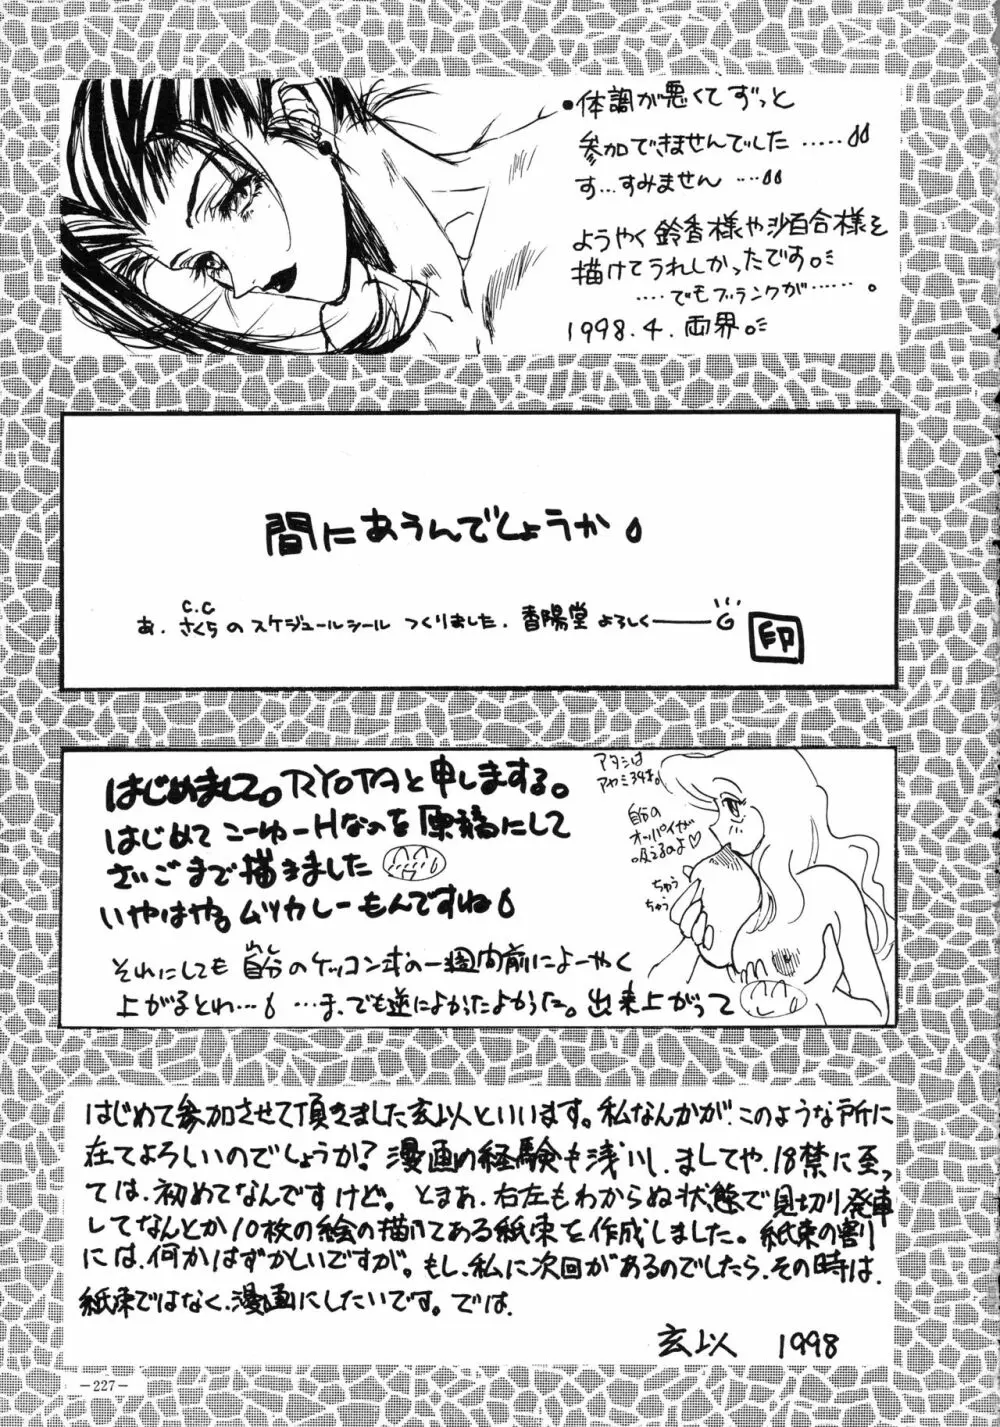 ●体調が悪くてずっと
参加できませんでした.....
す...すみません...
ようやく鈴香様や沙百合様を
描けてうれしかったです。
....でもブランクが......。
1998.4.両界。
間にあうんでしょうか
C.C
あ.さくらのスケジュールシールつくりました.香陽堂よろしくー
印
はじめまして。RYOTAと申しまする。
はじめてこーゆーHなのを原稿にして
さいごまで描きました
いやはや。ムツカシーもんですね
それにしても自分のケッコン式の一週間前によーやく
上がるとわ...
...ま、でも逆によかったよかった。出来上がって
アタシは
アヤミ34才。
自分の
オッパイが
吸えるのよ♡
ちゅう
ちゅう
はじめて参加させて頂きました玄以といいます。私なんかが、このような所に
在てよろしいのでしょうか?漫画の経験も浅いし、ましてや、18禁に至っ
ては、初めてなんですけど。とまぁ、右左もわからぬ状態で見切り発車
してなんとか10枚の絵の描いてある紙束を作成しました。紙束の割り
には、何かはずかしいですが。もし、私に次回があるのでしたら、その時は、
紙束ではなく、漫画にしたいです。では、
玄以 1998
-227-